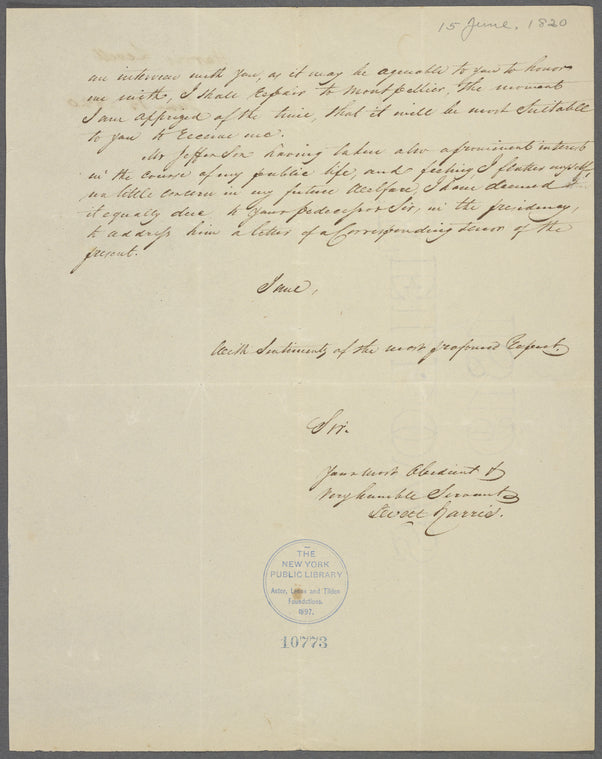 15 June, 1820
an interview with you, as it may be agreeable to you to honor
me with, I shall repair to Montpellier, the moment
I am apprized of the time, that it will be most suitable
to you to receive me.
Mr Jefferson having taken also a prominent interest
in the course of my public life, and feeling I flatter myself
no little concern in my future welfare, I have deemed
it equally due, to your predecessor Sir, in the presidency,
to address him a letter of a Corresponding tenor of the
present.
I am,
With Sentiments of the most profound Respect.
Sir.
Your most Obedient &
Very humble Servant
Levett Harris.
THE
NEW YORK
PUBLIC LIBRARY
Astor, Lenox and Tilden
Foundations.
1897.
10773